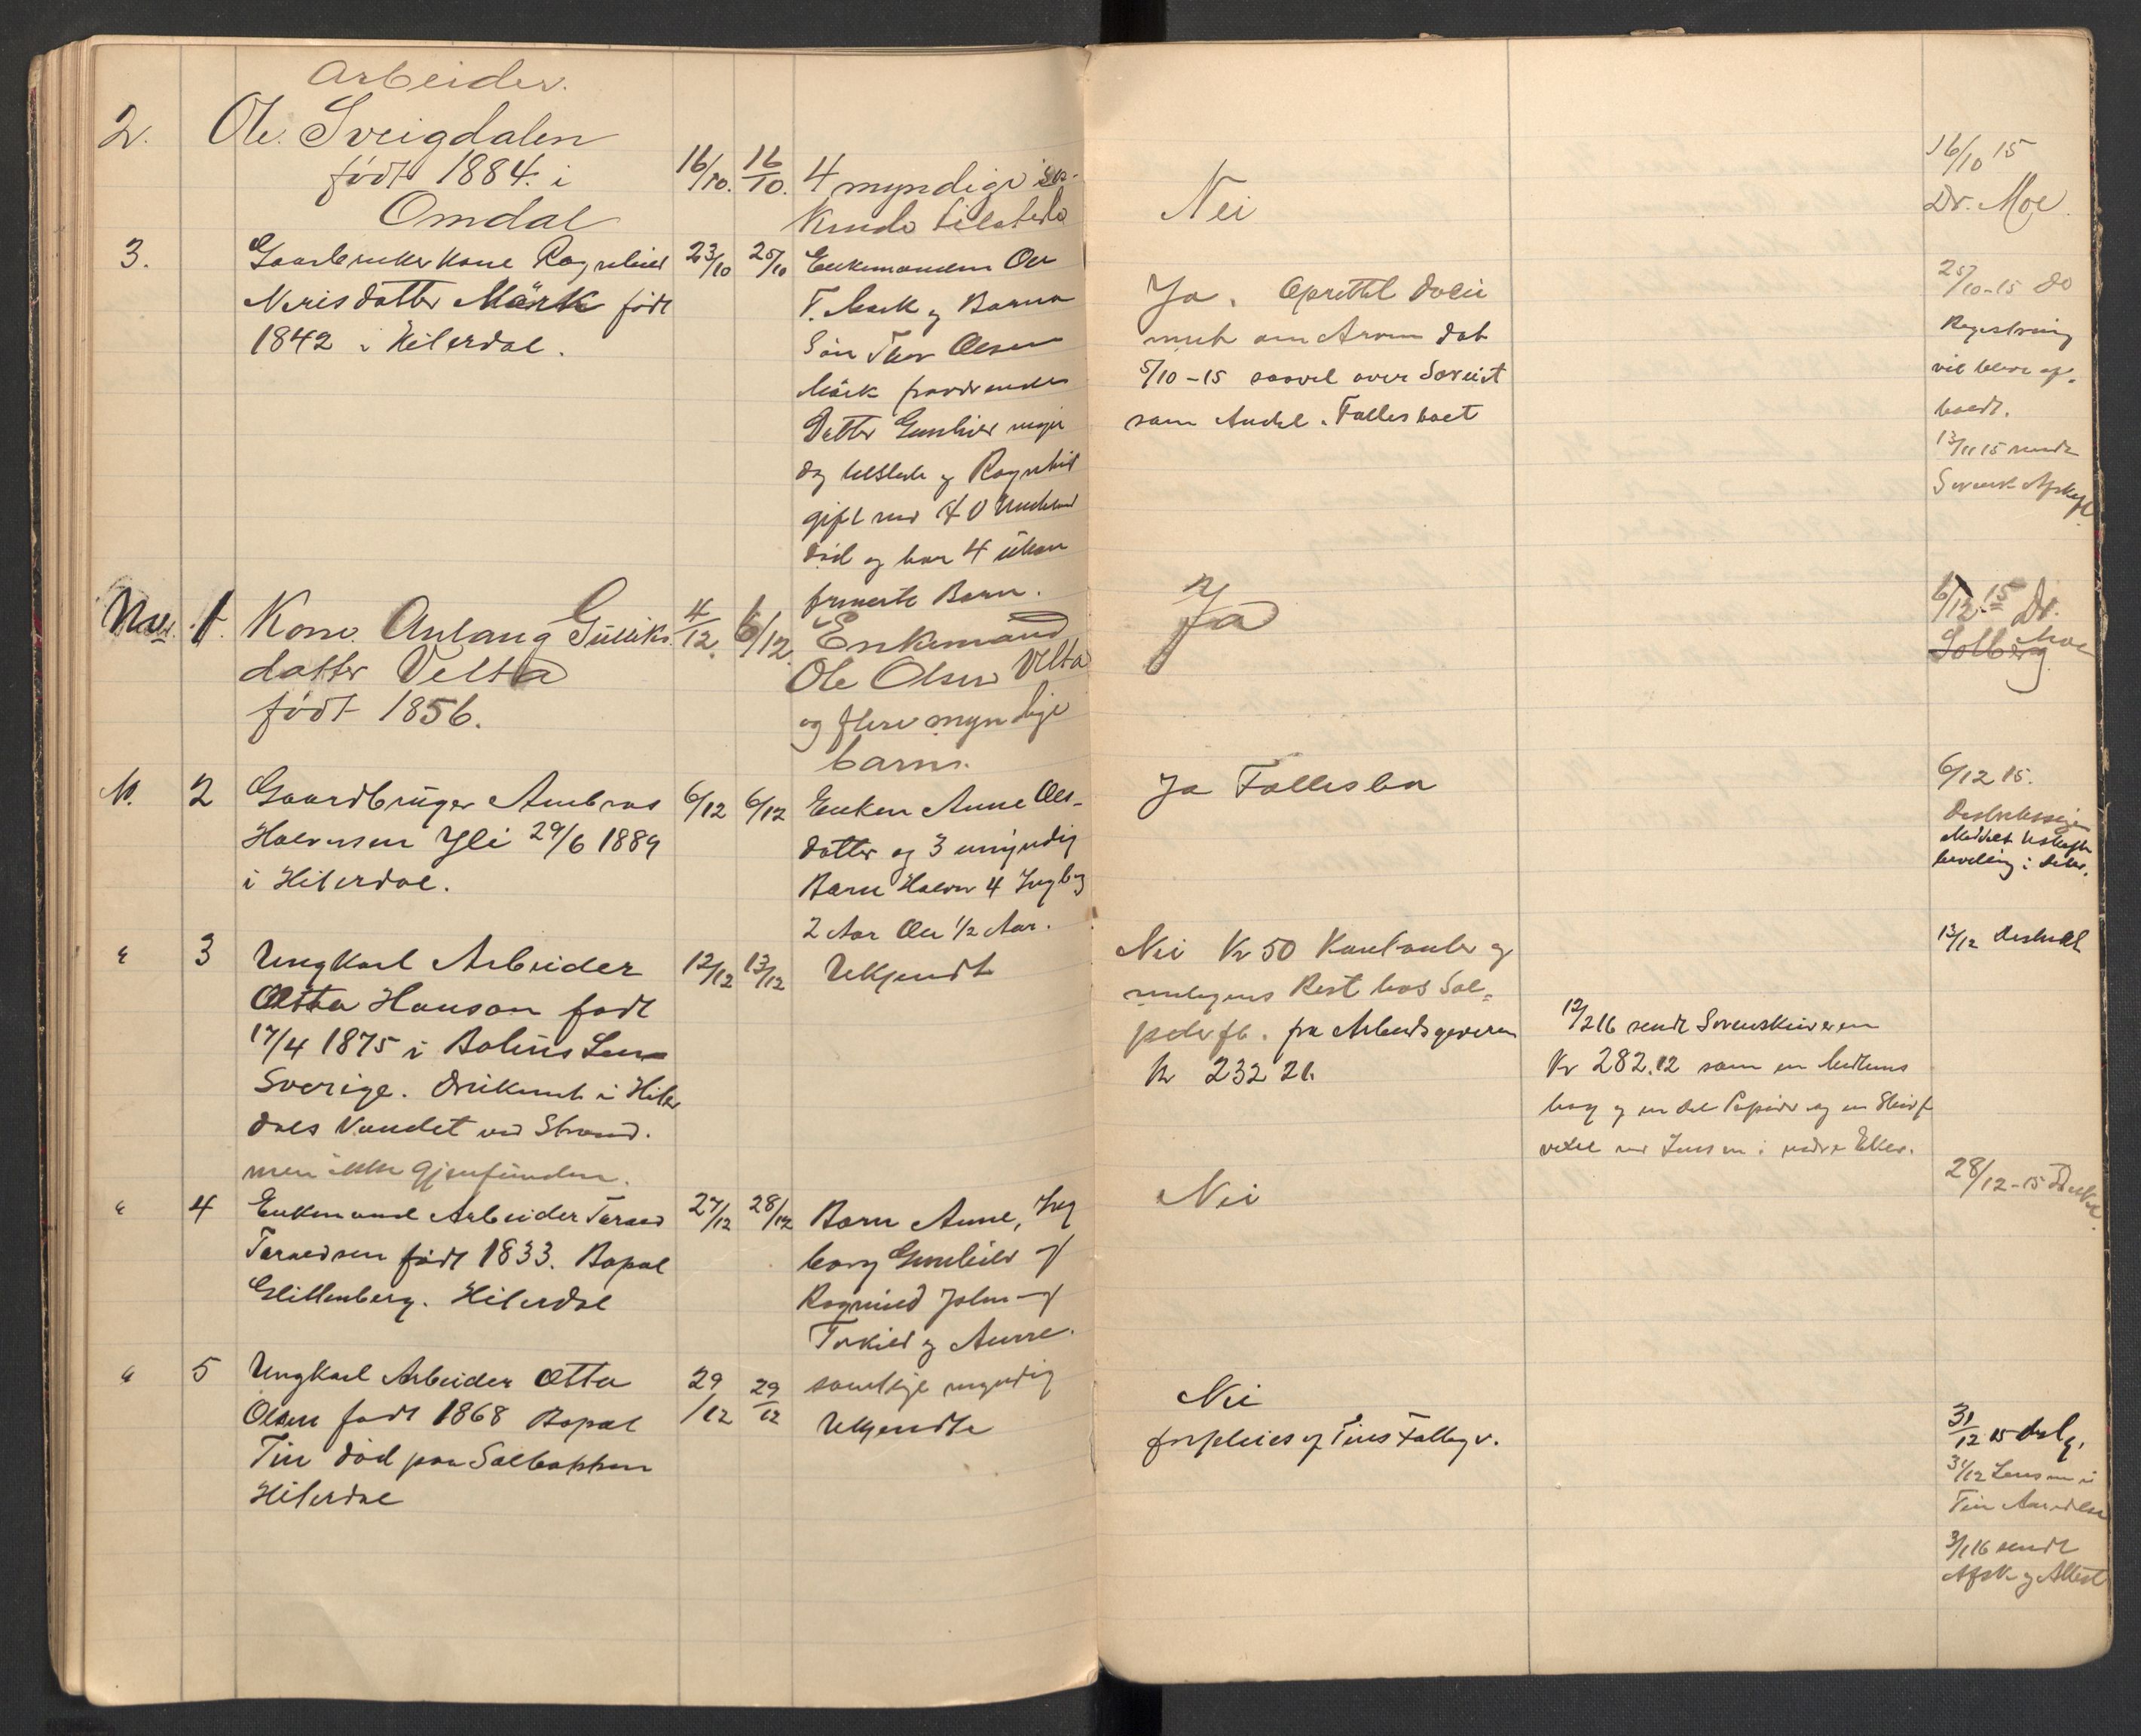 Arbeider.
2. Ole Sveigdalen
født 1884. i
Omdal
16/10. 16/10. 4 myndige
Kundo tilstede
Nei
16/10 15
Dr. Moe.
3. Gaardbruker kone Ragnhild
Nerisdatter Märk født
1842 i Hiterdal.
23/10 25/10 Enkemanden Ole
T. Mørk og Barna
Sön Thor Olsen
Märk fraværende
Datter Gunhild myn
dig tilstede og Ragnhild
gift med
död og har 4 ukon
firmerte Barn.
Ja. Oprettet Docu
ment om Arven dat
5/10-15 saavel over Særeiet
som Andel i Fællesboet
25/10-15 Do
Registrering
vil blive af-
holdt.
13/11 15 sendt
Sorensk Afskrift.
1. Kone Aslaug Gulliks
datter Velta
født 1856.
4/12. 6/12. Enkemand
Ole Olsen Velta
og flere myndige
barn.
Ja
6/12. 15 Dr.
Moe
Solberg
M. 2 Gaardbruger Ambros
Halvorsen Yli 29/6 1889
i Hiterdal.
6/12 6/12 Enken Anne Ols-
datter og 3 umyndig
Barn Halvor 4 Ingb og
2 Aar Ole 1/2 Aar.
Ja Fællesbo
6/12 15.
" 3 Ungkarl Arbeider
Otto Hanson født
17/4 1875 i Bohus Len
Sverige. Druknet i Hiter
dals Vandet ved Strand.
men ikke gjenfunden.
12/12 13/12 Ukjendt
Nei Kr 50 Kontanter og
muligens Rest hos Sal-
peterfb. fra Arbeidsgiveren
Kr 232 21.
12/2 16 sendt Sorenskriveren
Kr 282.12 som en Medlems
bog og en Del Papirer og en
ved Lensm. i nedre Eker.
13/12
" 4 Enkemand Arbeider Tarald
Taraldsen født 1833. Bopæl
Glittenberg. Hiterdal
27/12 28/12 Barn Anne, Ing
borg Gunhild og
Ragnhild John og
Torkild og Anne.
samtlige myndig
Nei
28/12-15
" 5 Ungkarl Arbeider Otto
Olsen født 1868 Bopæl
Tin död paa
Hiterdal
29/12 29/12 Ukjendte
Nei
forpleies af Tins Fattigv.
31/12 15
31/12 Lensm i
Tin Anmeldt
3/1 16 sendt
Afsk. og Attest